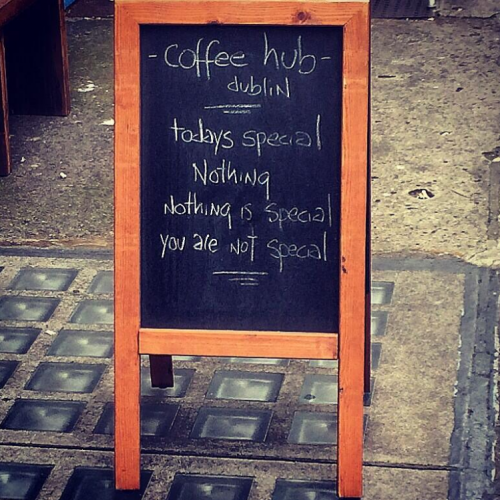 - coffee hub -
dublin
todays special
Nothing
Nothing is special
you are not special